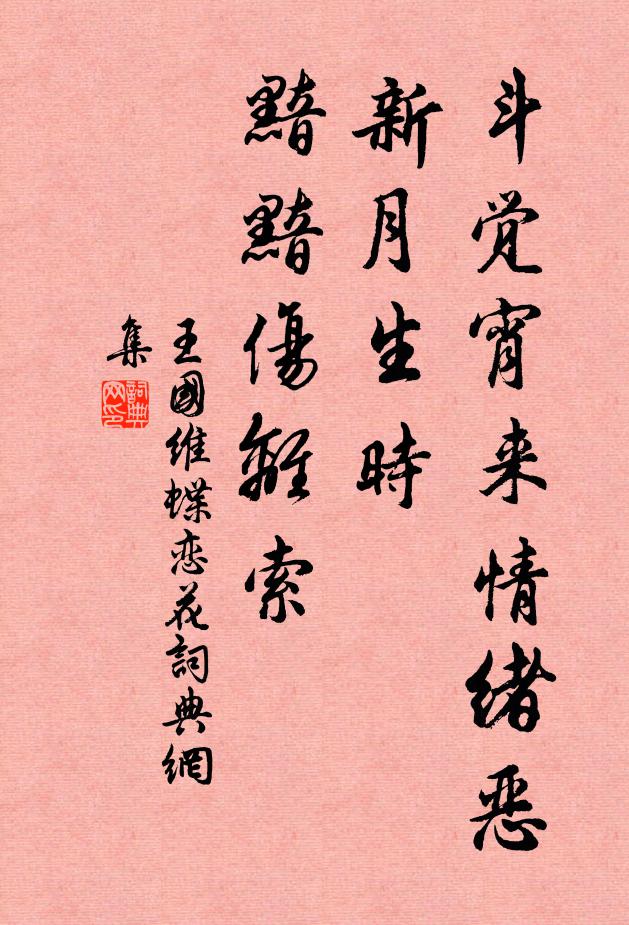 斗觉宵来情绪恶
新月生時
黯黯傷離索
王國维蝶恋花詞典網
集
詞典网印